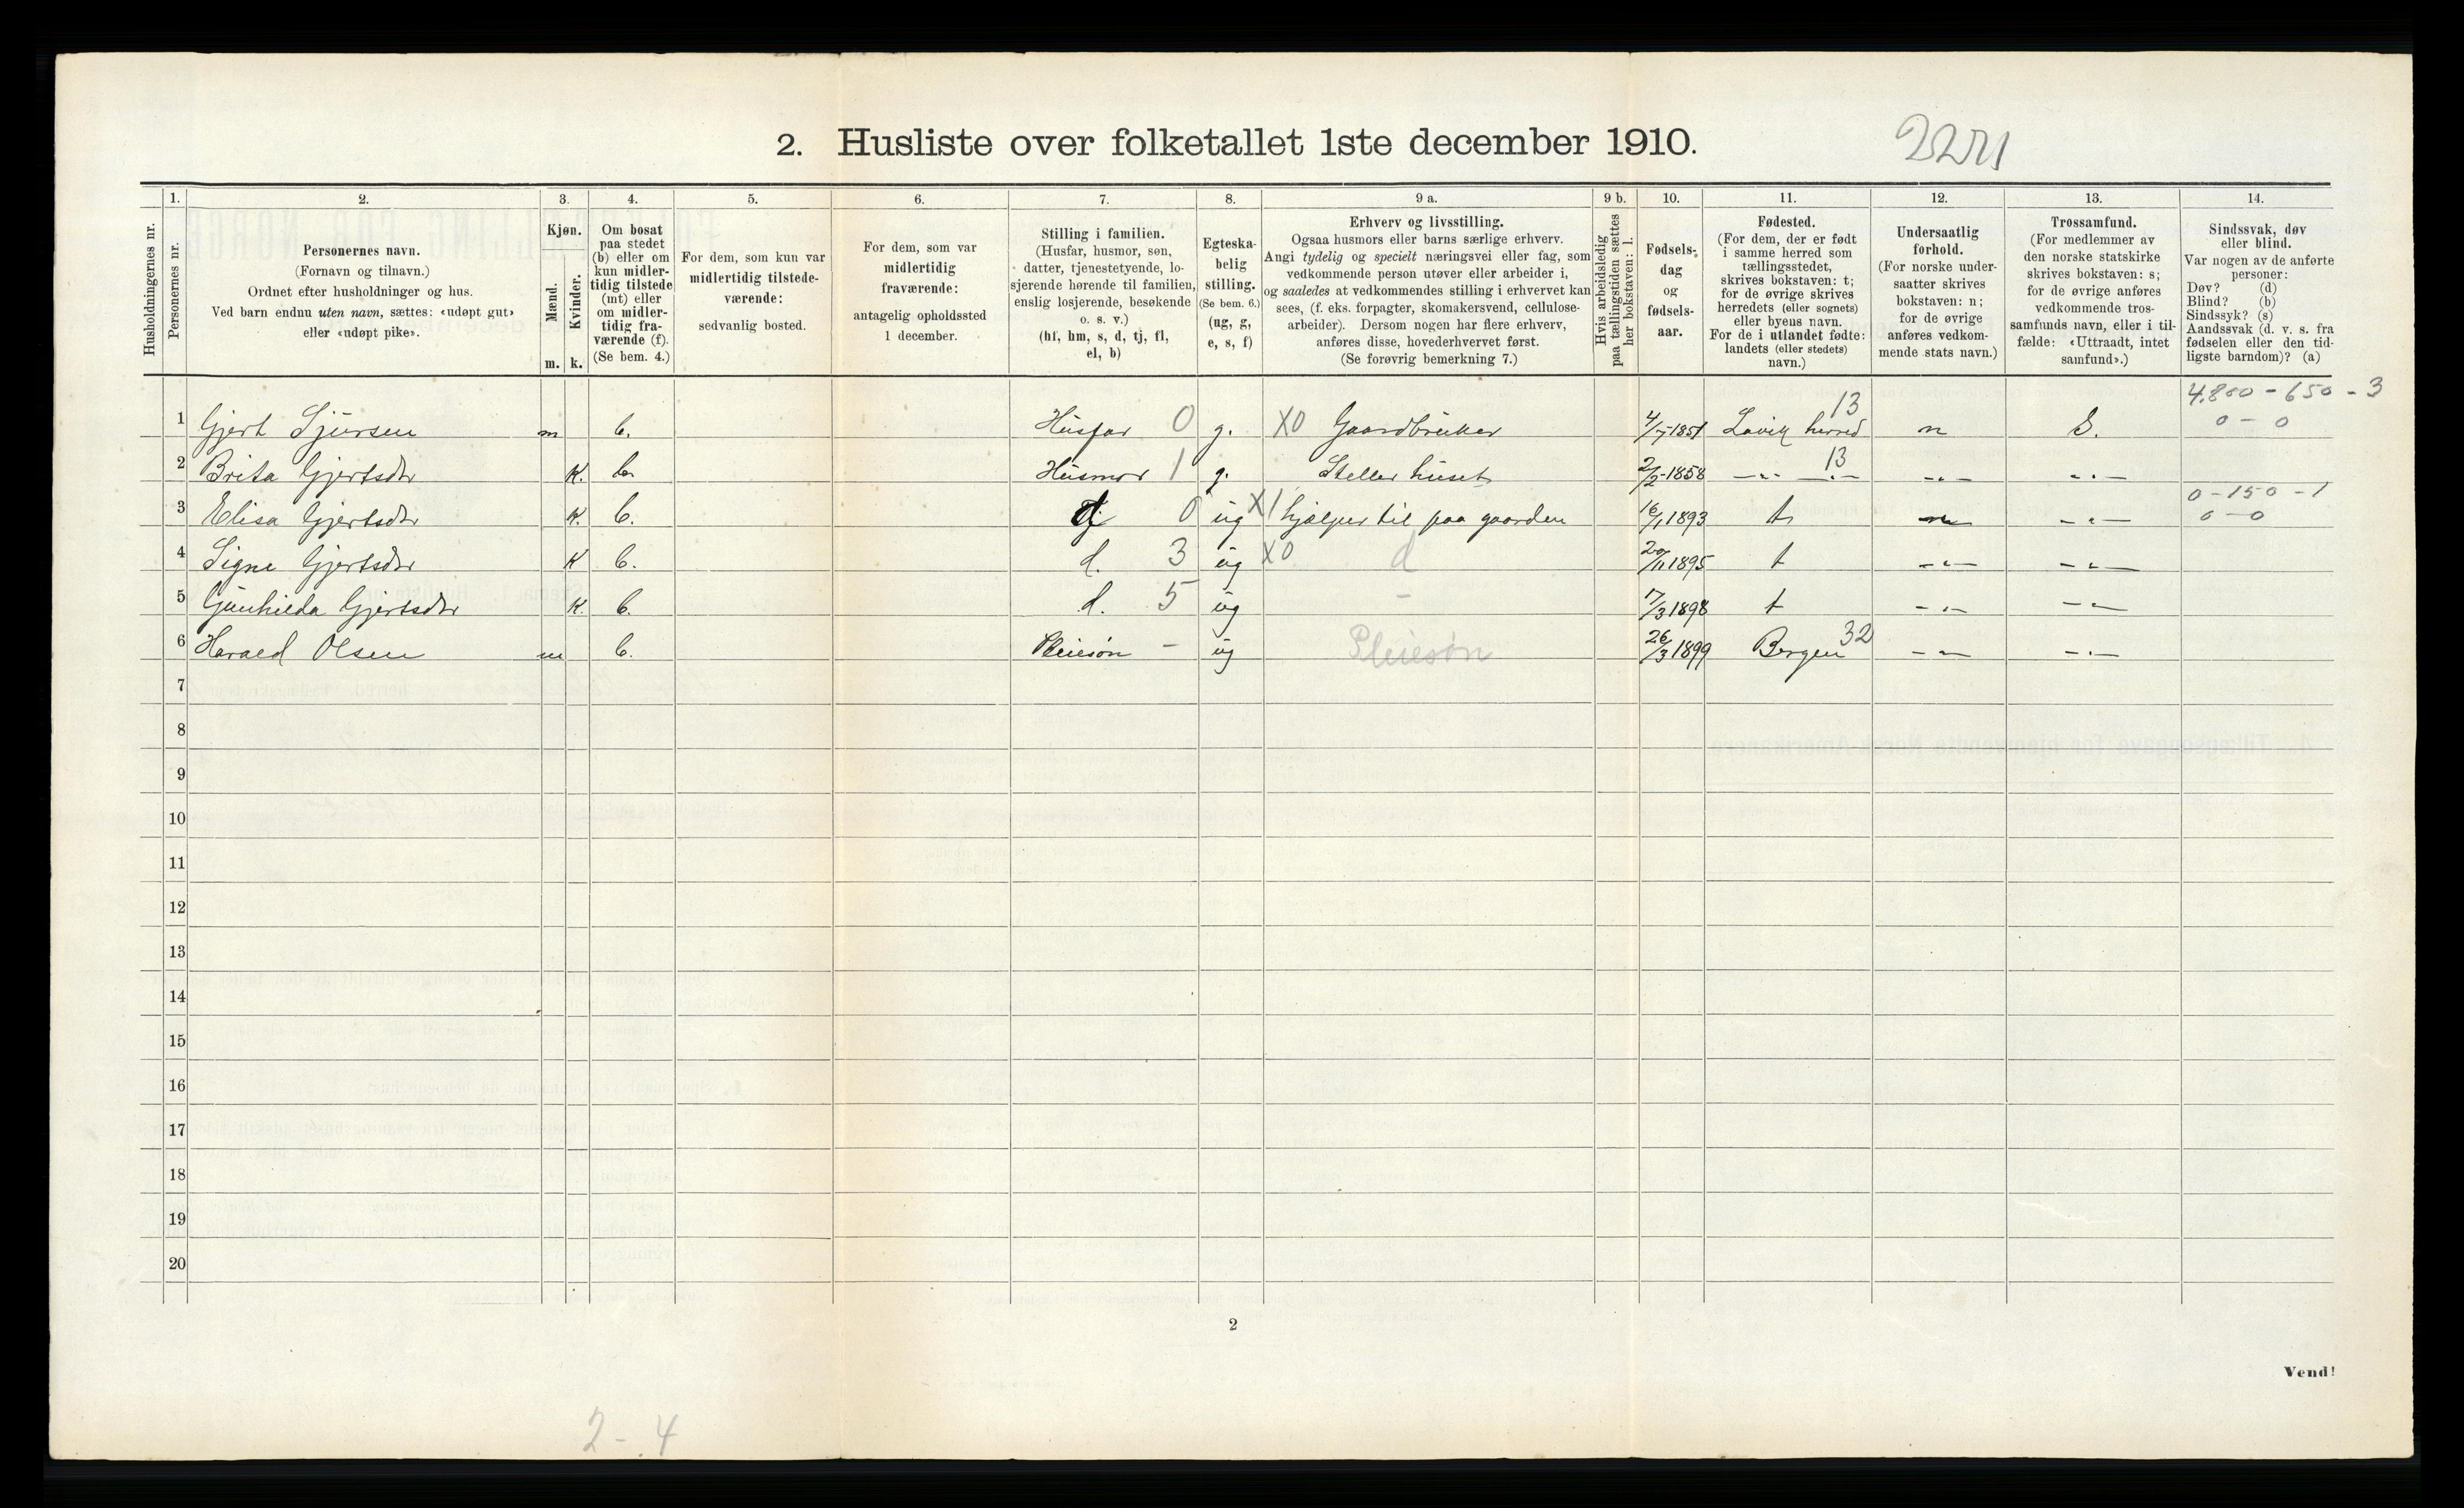 2. Husliste over folketallet 1ste december 1910.
1. 2. 3. 4. 5. 6. 7. 8. 9 a. 9 b. 10. 11. 12. 13. 14.
Husholdningernes nr.
Personernes nr.
Personernes navn.
(Fornavn og tilnavn.)
Ordnet efter husholdninger og hus.
Ved barn endnu uten navn, sættes: «udøpt gut»
eller «udøpt pike».
Kjøn.
Mænd.
Kvinder.
m. k.
Om bosat
paa stedet
(b) eller om
kun midler-
tidig tilstede
(mt) eller
om midler-
tidig fra-
værende (f).
(Se bem. 4.)
For dem, som kun var
midlertidig tilstede-
værende:
sedvanlig bosted.
For dem, som var
midlertidig
fraværende:
antagelig opholdssted
1 december.
Stilling i familien.
(Husfar, husmor, søn,
datter, tjenestetyende, lo-
sjerende hørende til familien,
enslig losjerende, besøkende
o. s. v.)
(hf, hm, s, d, tj, fl,
el, b)
Egteska-
belig
stilling.
(Se bem. 6.)
(ug, g,
e, s, f)
Erhverv og livsstilling.
Ogsaa husmors eller barns særlige erhverv.
Angi tydelig og specielt næringsvei eller fag, som
vedkommende person utøver eller arbeider i,
og saaledes at vedkommendes stilling i erhvervet kan
sees, (f. eks. forpagter, skomakersvend, cellulose-
arbeider). Dersom nogen har flere erhverv,
anføres disse, hovederhvervet først.
(Se forøvrig bemerkning 7.)
Hvis arbeidsledig
paa tællingstiden sættes
her bokstaven: l.
Fødsels-
dag
og
fødsels-
aar.
Fødested.
(For dem, der er født
i samme herred som
tællingsstedet,
skrives bokstaven: t;
for de øvrige skrives
herredets (eller sognets)
eller byens navn.
For de i utlandet fødte:
landets (eller stedets)
navn.)
Undersaatlig
forhold.
(For norske under-
saatter skrives
bokstaven: n;
for de øvrige
anføres vedkom-
mende stats navn.)
Trossamfund.
(For medlemmer av
den norske statskirke
skrives bokstaven: s;
for de øvrige anføres
vedkommende tros-
samfunds navn, eller i til-
fælde: «Uttraadt, intet
samfund».)
Sindssvak, døv
eller blind.
Var nogen av de anførte
personer:
Døv? (d)
Blind? (b)
Sindssyk? (s)
Aandssvak (d. v. s. fra
fødselen eller den tid-
ligste barndom)? (a)
4.800 - 650 - 3
1 Gjert Sjursen m b. Husfar 0 g. X0 Gaardbruker 1851 13 Lavik herred n S. 0 - 0
2 Brita Gjertsdtr K. b. Husmor 1 g. Steller huset 2/2-1858 13 -"- -"- -"- -"-
0 - 150 - 1
3 Elisa Gjertsdtr K. b. d 0 ug X1 hjælper til paa gaarden 16/1 1893 t -"- 0 - 0
4 Signe Gjertsdtr K b. d. 3 ug X0 d 20/11 1895 t -"- -"-
5 Gunhilda Gjertsdtr K. b. d. 5 ug - 17/3 1898 t -"- -"-
6 Harald Olsen m b. Pleiesøn - ug Pleiesøn 26/3 1899 Bergen 32 -"- -"-
7
8
9
10
11
12
13
14
15
16
17
18
19
20
2
Vend!
2 - 4